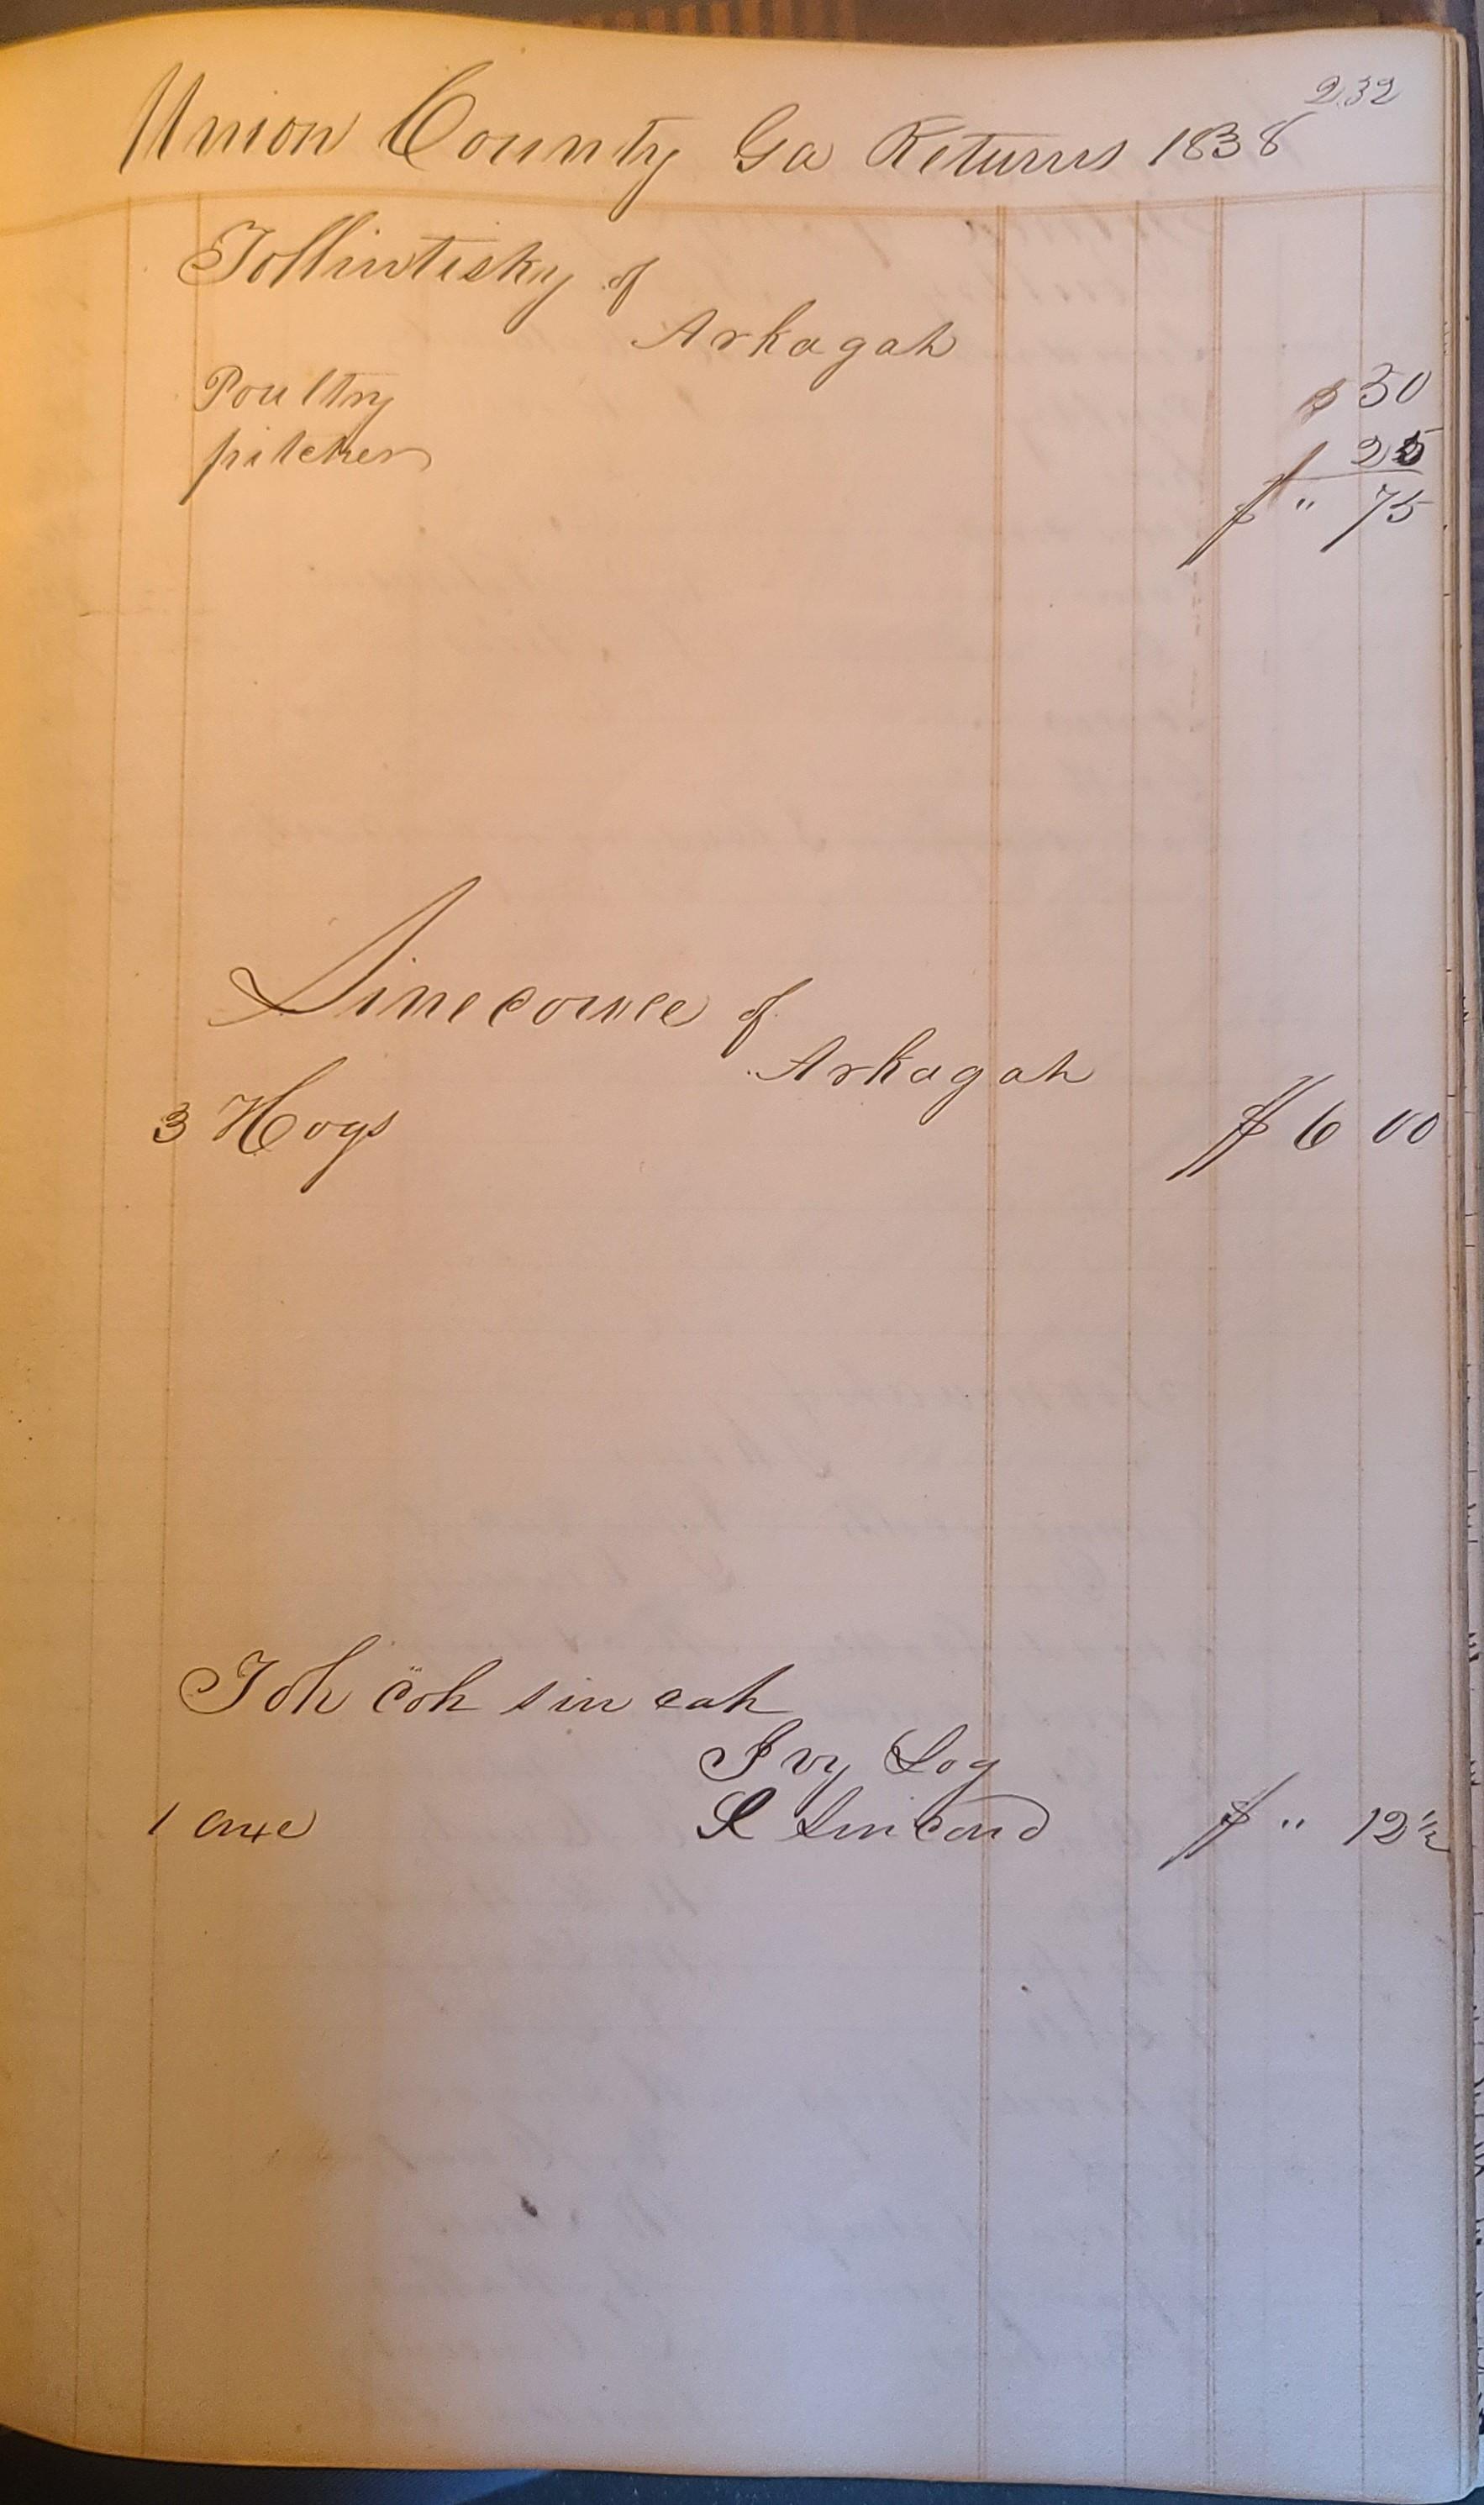 232
Union County Ga Returns 1838
Tollintisky of
Arkagah
Poultry $ 50
pitcher 25
$ " 75
Sinecowee of
Arkagah
3 Hogs $ 6 00
Toh coh sin eah
Ivy Log
1 axe $ " 12 1/2